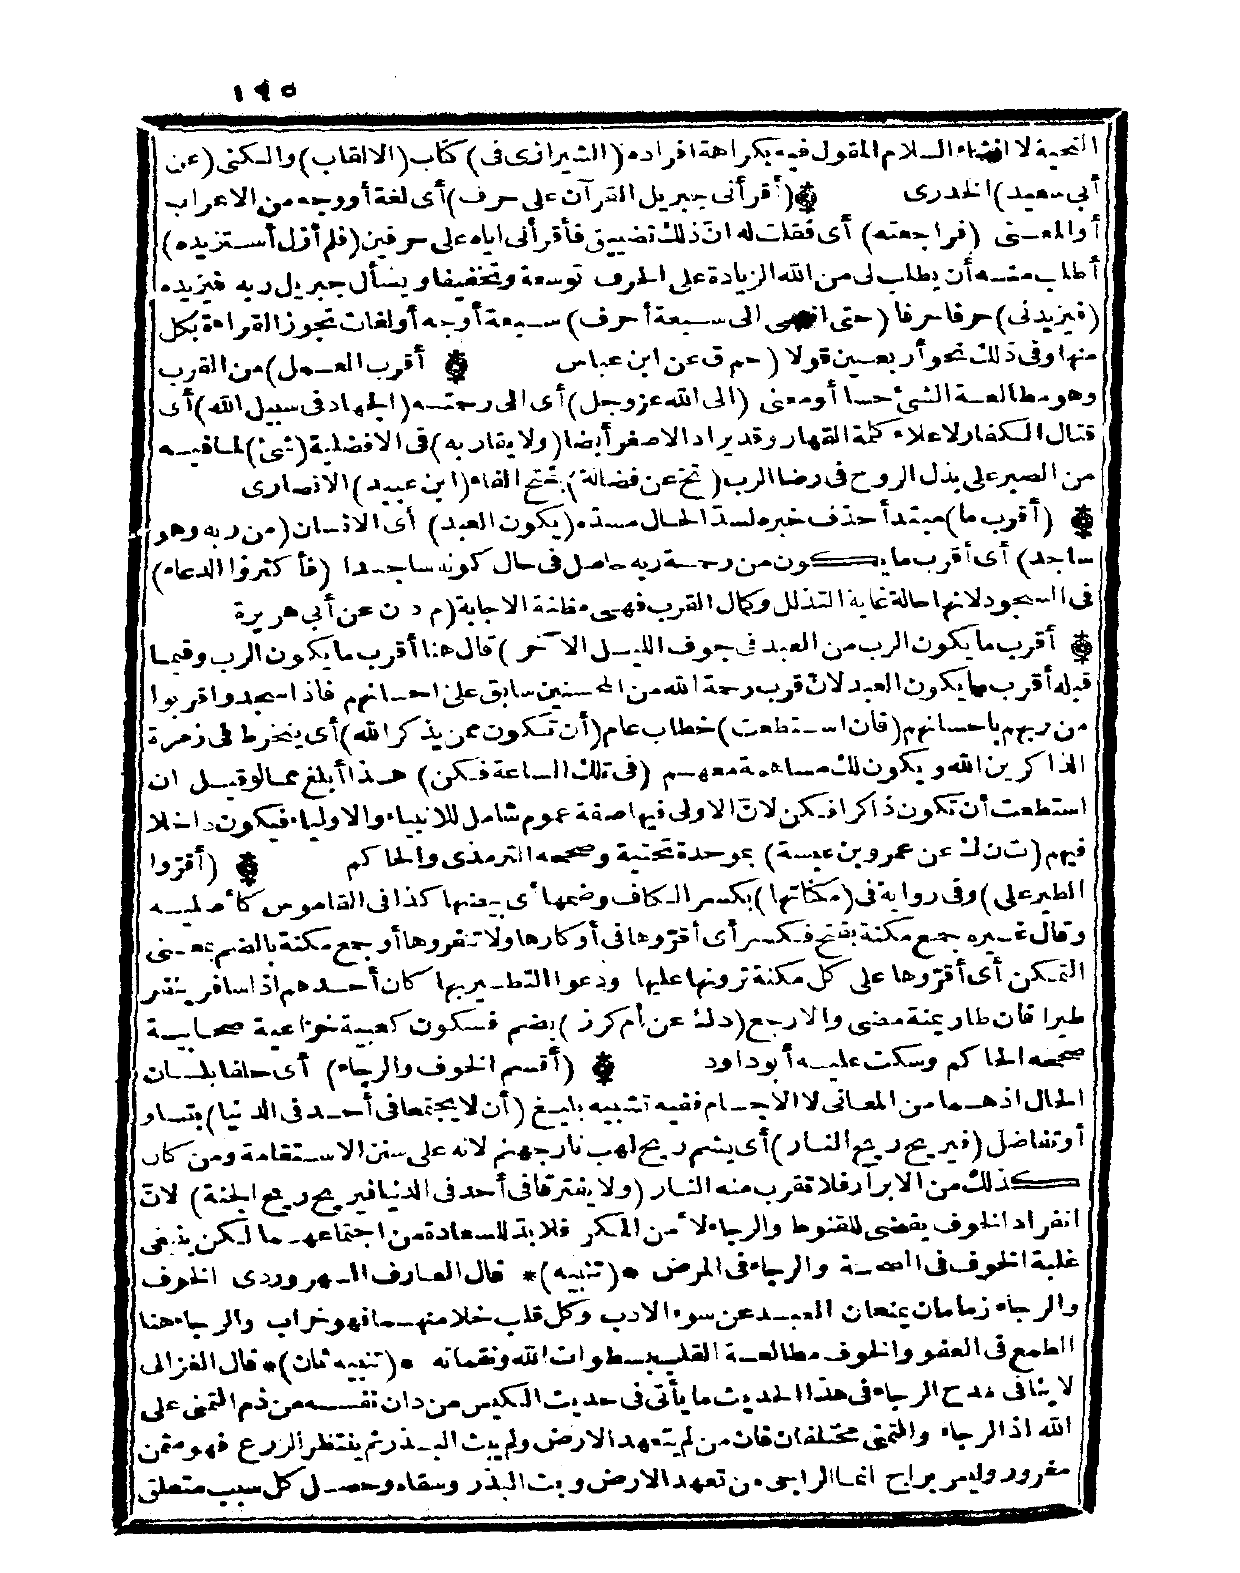 ١٩٥
التحية لا افشاء السلام المقول فيه بكراهة افراده (الشيرازى فى) كتاب (الالقاب) والكنى (عن
أبى سعيد) الخدرى ۞ (أقرأنى جبريل القرآن على حرف) أى لغة أو وجه من الاعراب
أو المعنى (فراجعته) أى فقلت له ان ذلك تضييق فأقرأنى اياه على حرفين (فلم أزل أستزيده)
أطلب منه أن يطلب لى من الله الزيادة على الحرف توسعة وتخفيفا ويسأل جبريل ربه فيزيده
(فيزيدنى) حرفا حرفا (حتى انتهى الى سبعة أحرف) سبعة أوجه أو لغات تجوز القراءة بكل
منها وفى ذلك نحو أربعين قولا (حم ق عن ابن عباس ۞ أقرب العمل) من القرب
وهو مطالعة الشئ حسا أو معنى (الى الله عز وجل) أى الى رحمته (الجهاد فى سبيل الله) أى
قتال الكفار لاعلاء كلمة القهار وقد يراد الاصغر أيضا (ولا يقاربه) فى الافضلية (شئ) لما فيه
من الصبر على بذل الروح فى رضا الرب (تخ عن فضالة) بفتح الفاء (ابن عبيد) الانصارى
۞ (أقرب ما) مبتدأ حذف خبره لسد الحال مسده (يكون العبد) أى الانسان (من ربه وهو
ساجد) أى أقرب ما يكون من رحمة ربه حاصل فى حال كونه ساجدا (فأكثروا الدعاء)
فى السجود لانها حالة غاية التذلل وكمال القرب فهى مظنة الاجابة (م د ن عن أبى هريرة
۞ أقرب ما يكون الرب من العبد فى جوف الليل الآخر) قال هنا أقرب ما يكون الرب وفيما
قبله أقرب ما يكون العبد لان قرب رحمة الله من المحسنين سابق على احسانهم فاذا سجدوا قربوا
من ربهم باحسانهم (فان استطعت) خطاب عام (أن تكون ممن يذكر الله) أى ينخرط فى زمرة
الذاكرين الله ويكون لك مساهمة معهم (فى تلك الساعة فكن) هذا أبلغ مما لو قيل ان
استطعت أن تكون ذاكرا فكن لان الاولى فيها صفة عموم شامل للانبياء والاولياء فيكون داخلا
فيهم (ت ن ك عن عمرو بن عبسة) بموحدة تحتية وصححه الترمذى والحاكم ۞ (أقرّوا
الطير على) وفى رواية فى (مكناتها) بكسر الكاف وضمها أى بيضها كذا فى القاموس كأصليه
وقال غيره جمع مكنة بفتح فكسر أى أقرّوها فى أوكارها ولا تنفروها أو جمع مكنة بالضم بمعنى
التمكن أى أقرّوها على كل مكنة ترونها عليها ودعوا التطير بها كان أحدهم اذا سافر ينفر
طيرا فان طار يمنة مضى والا رجع (د ك عن أم كرز) بضم فسكون كعبية خزاعية صحابية
صححه الحاكم وسكت عليه أبو داود ۞ (أقسم الخوف والرجاء) أى حلفا بلسان
الحال اذ هما من المعانى لا الاجسام ففيه تشبيه بليغ (أن لا يجتمعا فى أحد فى الدنيا) بتساو
أو تفاضل (فيريح ريح النار) أى يشم ريح لهب نار جهنم لانه على سنن الاستقامة ومن كان
كذلك من الابرار فلا تقرب منه النار (ولا يفترقا فى أحد فى الدنيا فيريح ريح الجنة) لان
انفراد الخوف يقضى للقنوط والرجاء لأمن المكر فلا بد للسعادة من اجتماعهما لكن ينبغى
غلبة الخوف فى الصحة والرجاء فى المرض * (تنبيه) * قال العارف السهروردى الخوف
والرجاء زمامان يمنعان العبد عن سوء الادب وكل قلب خلا منهما فهو خراب والرجاء هنا
الطمع فى العفو والخوف مطالعة القلب بسطوات الله ونقماته * (تنبيه ثان) * قال الغزالى
لا ينافى مدح الرجاء فى هذا الحديث ما يأتى فى حديث الكيس من دان نفسه من ذم التمنى على
الله اذ الرجاء والتمنى مختلفان فان من لم يتعهد الارض ولم يبث البذر ثم ينتظر الزرع فهو متمن
مغرور وليس براج انما الراجى من تعهد الارض وبث البذر وسقاه وحصل كل سبب متعلق